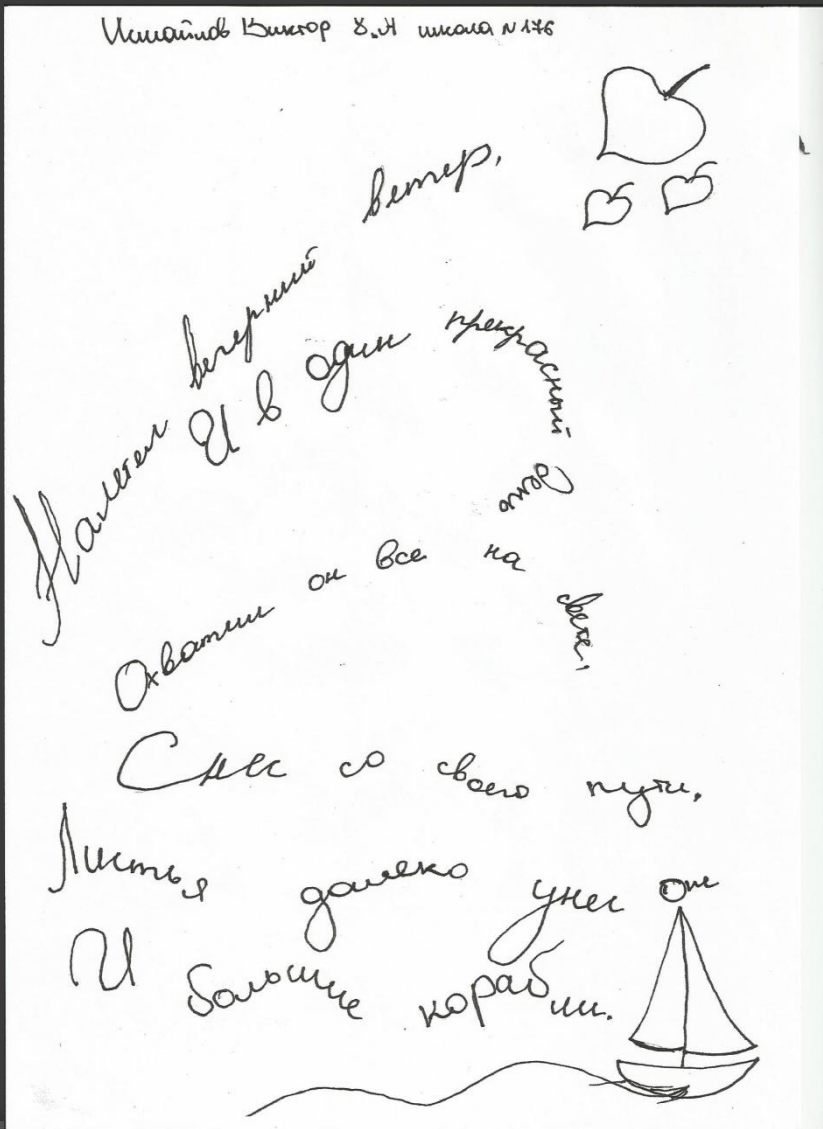 Исмаилов Виктор 8.А школа №176
Налетел вечерний ветер,
И в один прекрасный день
Охватил он все на свете,
Снес со своего пути.
Листья далеко унес он
И большие корабли.